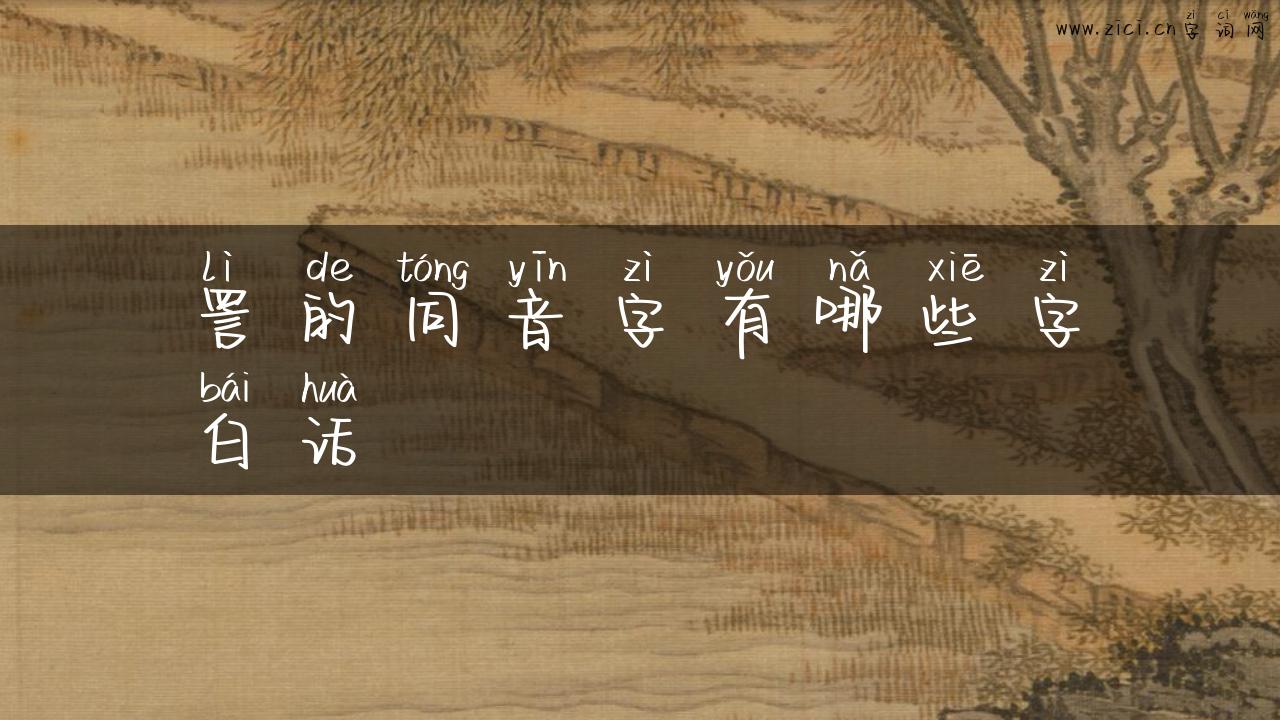 www.zici.cn字词网
zì cí wǎng
lì de tóng yīn zì yǒu nǎ xiē zì
詈的同音字有哪些字
bái huà
白话